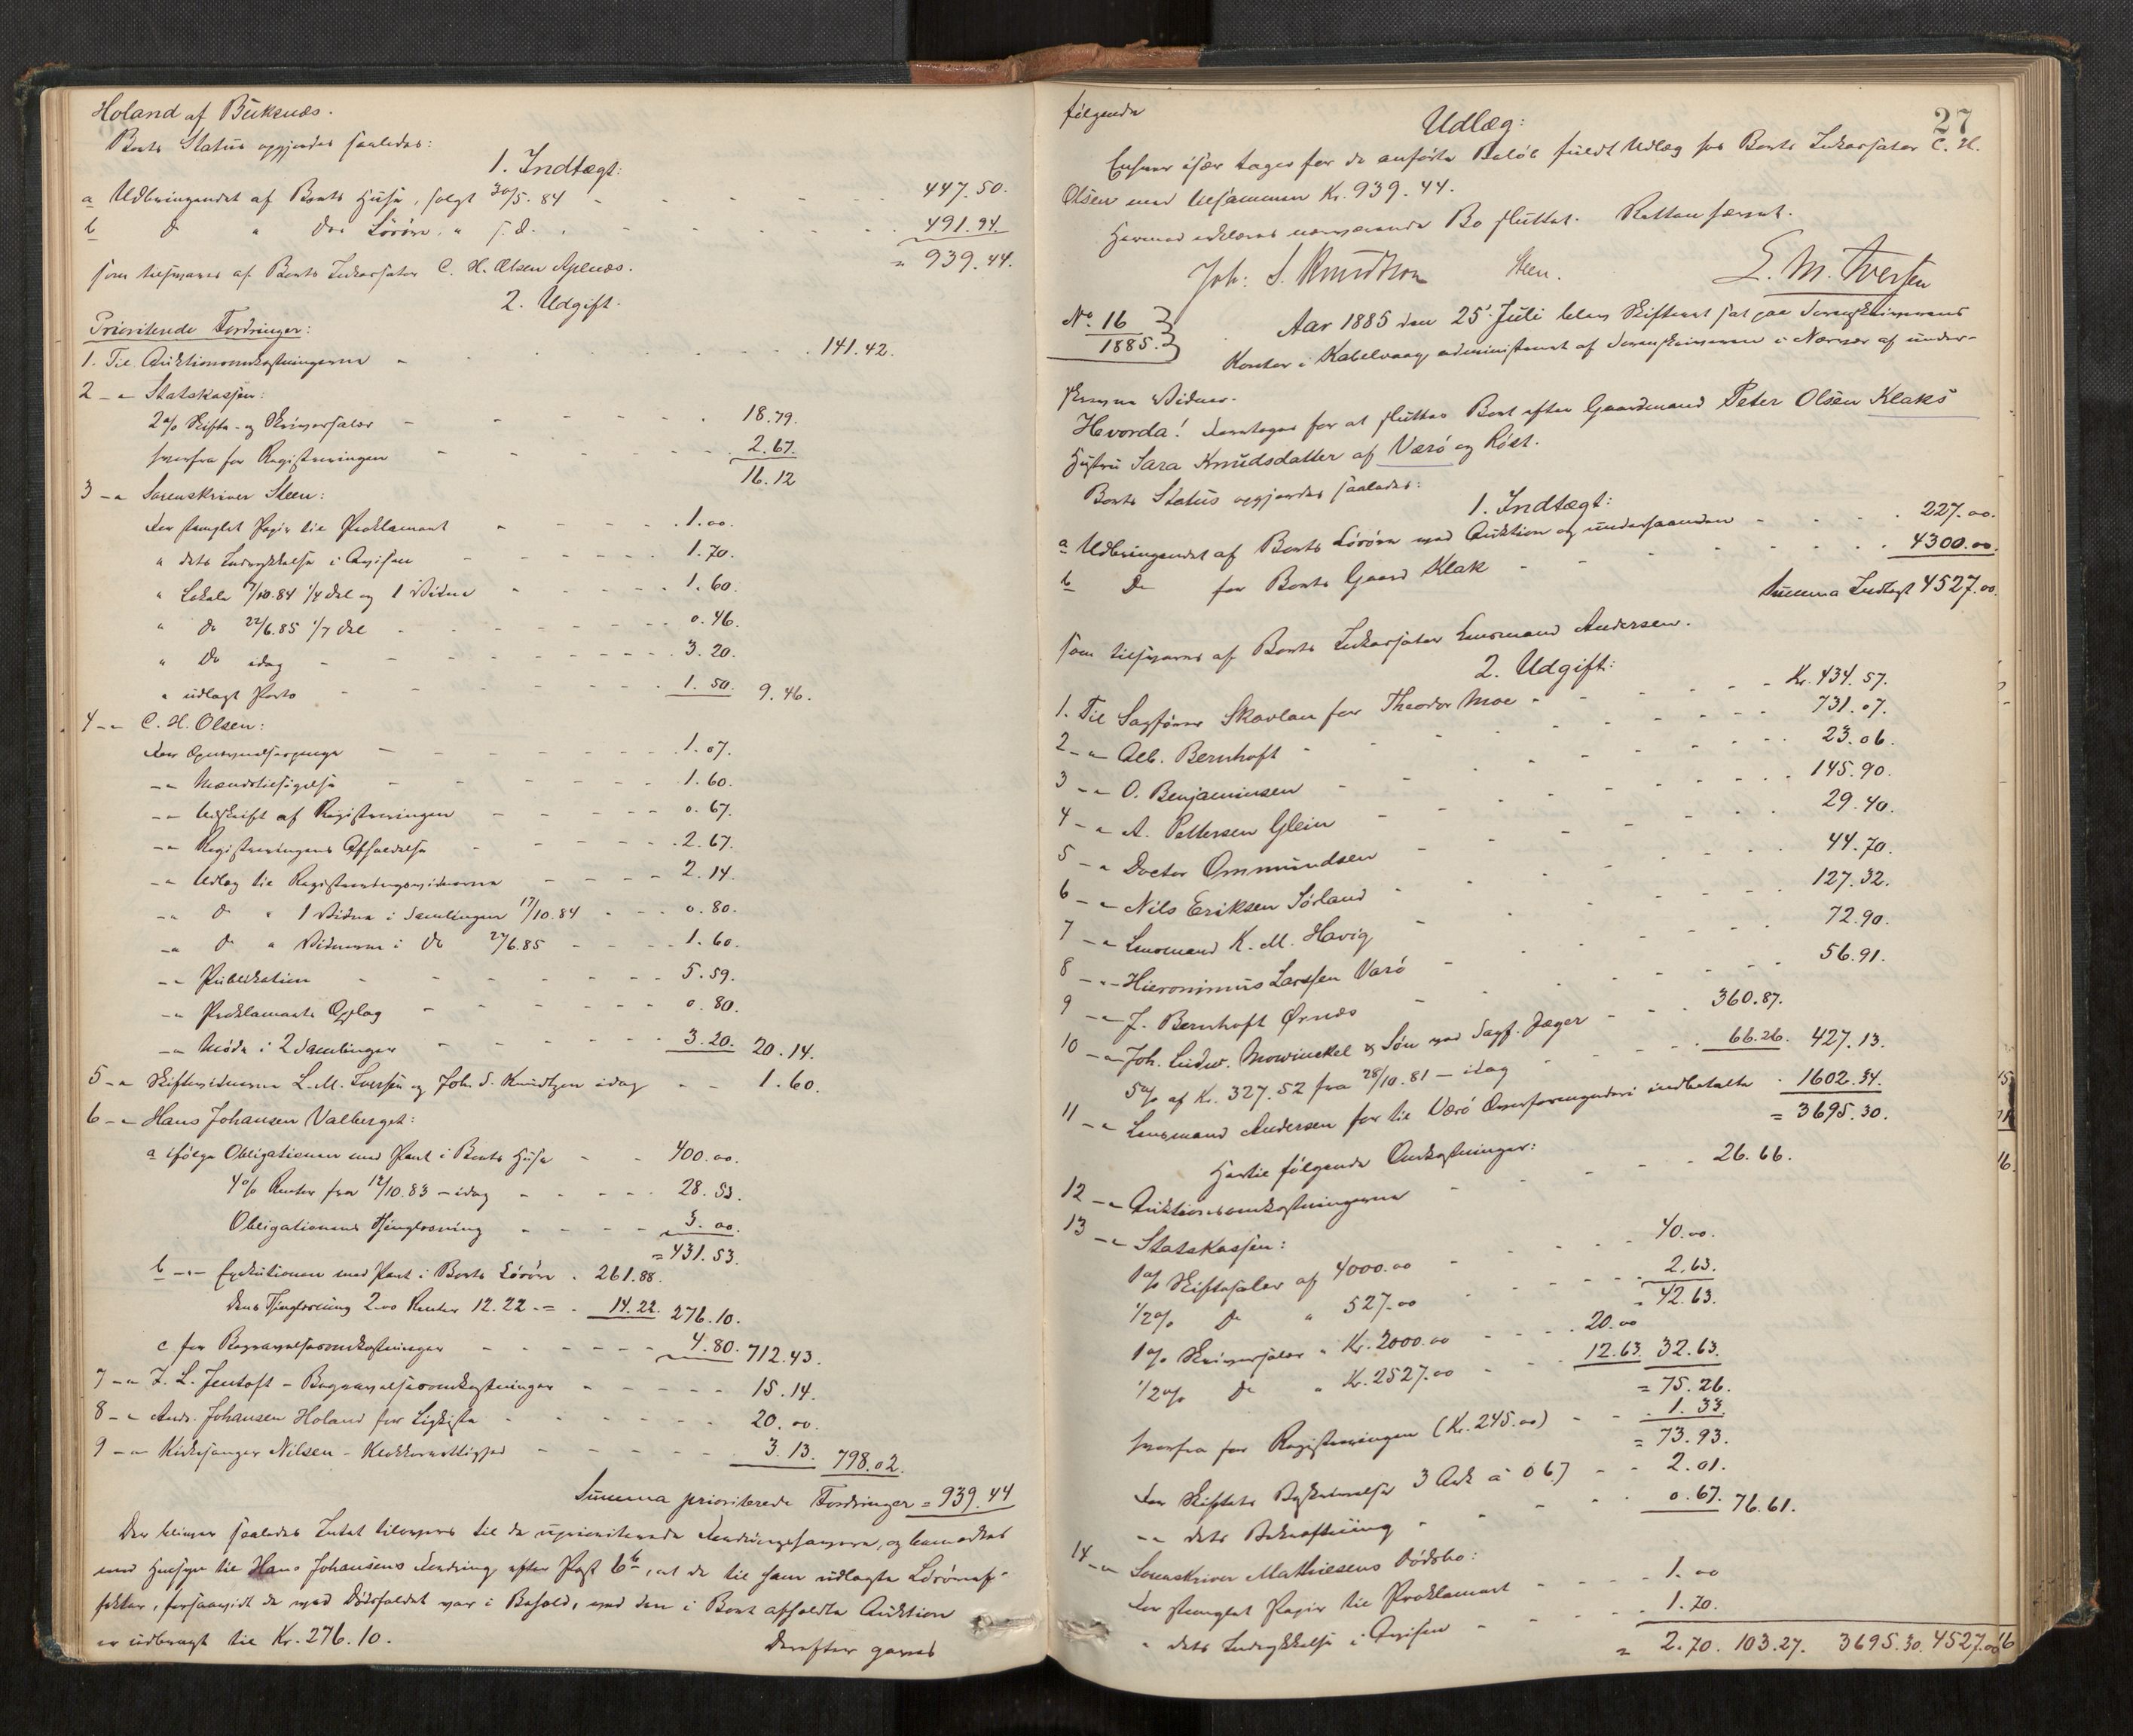 Holand af Buksnæs.
Boets Status opgjordes saaledes:
1. Indtægt:
a Udbringendet af Boets Huse, solgt 30/5.84 - - - 447.50.
b Do " Do Lösöre " s. d. - - - 491.94.
som tilsvares af Boets Inkassator C. H. Olsen Apenæs. = 939.44.
2. Udgift.
Prioriterede Fordringer:
1. Til Auktionsomkostningerne - - - 141.42.
2 - " Statskassen:
2 % Skifte- og Skriversalær - - - 18.79.
herfra for Registreringen - - - 2.67.
16.12
3 - " Sorenskriver Steen:
For stemplet Papir til Proklamaet - - - 1.00.
" dets Indrykkelse i Avisen - - - 1.70.
" Lokale 17/10.84 1/4 Del og 1 Vidne - - - 1.60.
" do 22/6.85 1/7 Del - - - 0.46.
" Do idag - - - 3.20.
" udlagt Porto - - - 1.50. 9.46.
4 - " C. H. Olsen:
For Opnævnelsespenge - - - 1.07.
- " Mændstilsigelse - - - 1.60.
- " Udskrift af Registreringen - - - 0.67.
- " Registreringens Afholdelse - - - 2.67.
- " Udlæg til Registreringsvidnerne - - - 2.14.
- " do " 1 Vidne i Samlingen 17/10.84 - - - 0.80.
- " do " Vidnerne i Do 22/6.85 - - - 1.60.
- " Publikation - - - 5.59.
- " Proklamaets Opslag - - - 0.80.
- " Møde i 2 Samlinger - - - 3.20. 20.14.
5 - " Skiftevidnerne L. M. Iversen og Joh. S. Knudtzen idag - - 1.60.
6 - " Hans Johansen Valberget:
a ifölge Obligationen med Pant i Boets Huse - - 400.00.
4 % Renter fra 12/10.83 - idag - - - 28.53.
Obligationens Thinglæsning - - - 3.00.
= 431.53.
b - " - Exekutionen med Pant i Boets Lösöre . 261.88.
dens Thinglæsning 2.00 Renter 12.22 - = . 14.22. 276.10.
c for Begravelsesomkostninger - - - 4.80. 712.43.
7 - " J. L. Jentoft - Begravelsesomkostninger - - - 15.14.
8 - " Andr. Johansen Holand for Ligkiste - - - 20.00.
9 - " Kirkesanger Nilsen - Klokkerrettighed - - - 3.13. 798.02.
Summa prioriterede Fordringer = 939.44
Der bliver saaledes Intet tilovers til de uprioriterede Fordringshavere, og bemærkes
med Hensyn til Hans Johansens Fordring, efter Post 6b, at de til ham udlagte Lösöreef-
fekter, forsaavidt de ved Dödsfaldet var i Behold, ved den i Boet afholdte Auktion
er udbragt til Kr. 276.10. Derefter gaves
fölgende
Udlæg:
27
Enhver især tages for de anförte Belöb fuldt Udlæg hos Boets Inkassator C. H.
Olsen med tilsammen Kr. 939.44.
Hermed erklæres nærværende Bo sluttet. Retten hævet.
Joh: S. Knudtzon Steen. L. M. Iversen
No. 16 1885. Aar 1885 den 25' Juli blev Skifteret sat paa Sorenskriverens
Kontor i Kabelvaag, administreret af Sorenskriveren i Nærvær af under-
skrevne Vidner.
Hvorda! Foretoges for at sluttes Boet efter Gaardmand Peter Olsen Klaks
Hustru Sara Knudsdatter af Værö og Röst.
Boets Status opgjordes saaledes:
1. Indtægt:
a Udbringendet af Boets Lösöre ved Auktion og underhaanden - - - 227.00.
b Do for Boets Gaard Klak - - - 4300.00.
Summa Indtægt 4527.00.
som tilsvares af Boets Inkassator Lensmand Andersen.
2. Udgift:
1. Til Sagförer Skavlan for Theodor Moe - - - Kr. 434.57.
2 - " Alb. Bernhoft - - - 731.07.
3 - " O. Benjaminsen - - - 23.06.
4 - " A. Pettersen Glein - - - 145.90.
5 - " Doctor Ommundsen - - - 29.40.
6 - " Nils Eriksen Sörland - - - 44.70.
7 - " Lensmand K. M. Havig - - - 127.32.
8 - " - Hieronimus Larssen Værö - - - 72.90.
9 - " J. Bernhoft Ørnæs - - - 56.91.
10 - " Joh. Ludw. Mowinckel & Sön ved Sagf. Jæger - - - 360.87.
5 % af Kr. 327.52 fra 28/10.81 - idag - - - 66.26. 427.13.
11 - " Lensmand Andersen for til Værö Overformynderi indbetalte . 1602.34.
= 3695.30.
Hertil fölgende Omkostninger:
12 - " Auktionsomkostningerne - - - 26.66.
13 - " Statskassen:
1 % Skiftesalær af 4000.00 - - - 40.00.
1/2 % Do " 527.00 - - - 2.63.
= 42.63.
1 % Skriversalær " Kr. 2000.00 - - - 20.00
1/2 % Do " Kr. 2527.00 - - - 12.63. 32.63.
= 75.26.
herfra for Registreringen (Kr. 245.00) - - 1.33.
= 73.93.
For Skiftets Beskrivelse 3 Ark à 067 - - 2.01.
- " dets Bekræftning - - - 0.67. 76.61.
14 - " Sorenskriver Mathiesens Dödsbo:
For stemplet Papir til Proklamaet - - - 1.00
" dets Indrykkelse i Avisen - - - 1.70.
= 2.70. 103.27. 3695.30. 4527.00